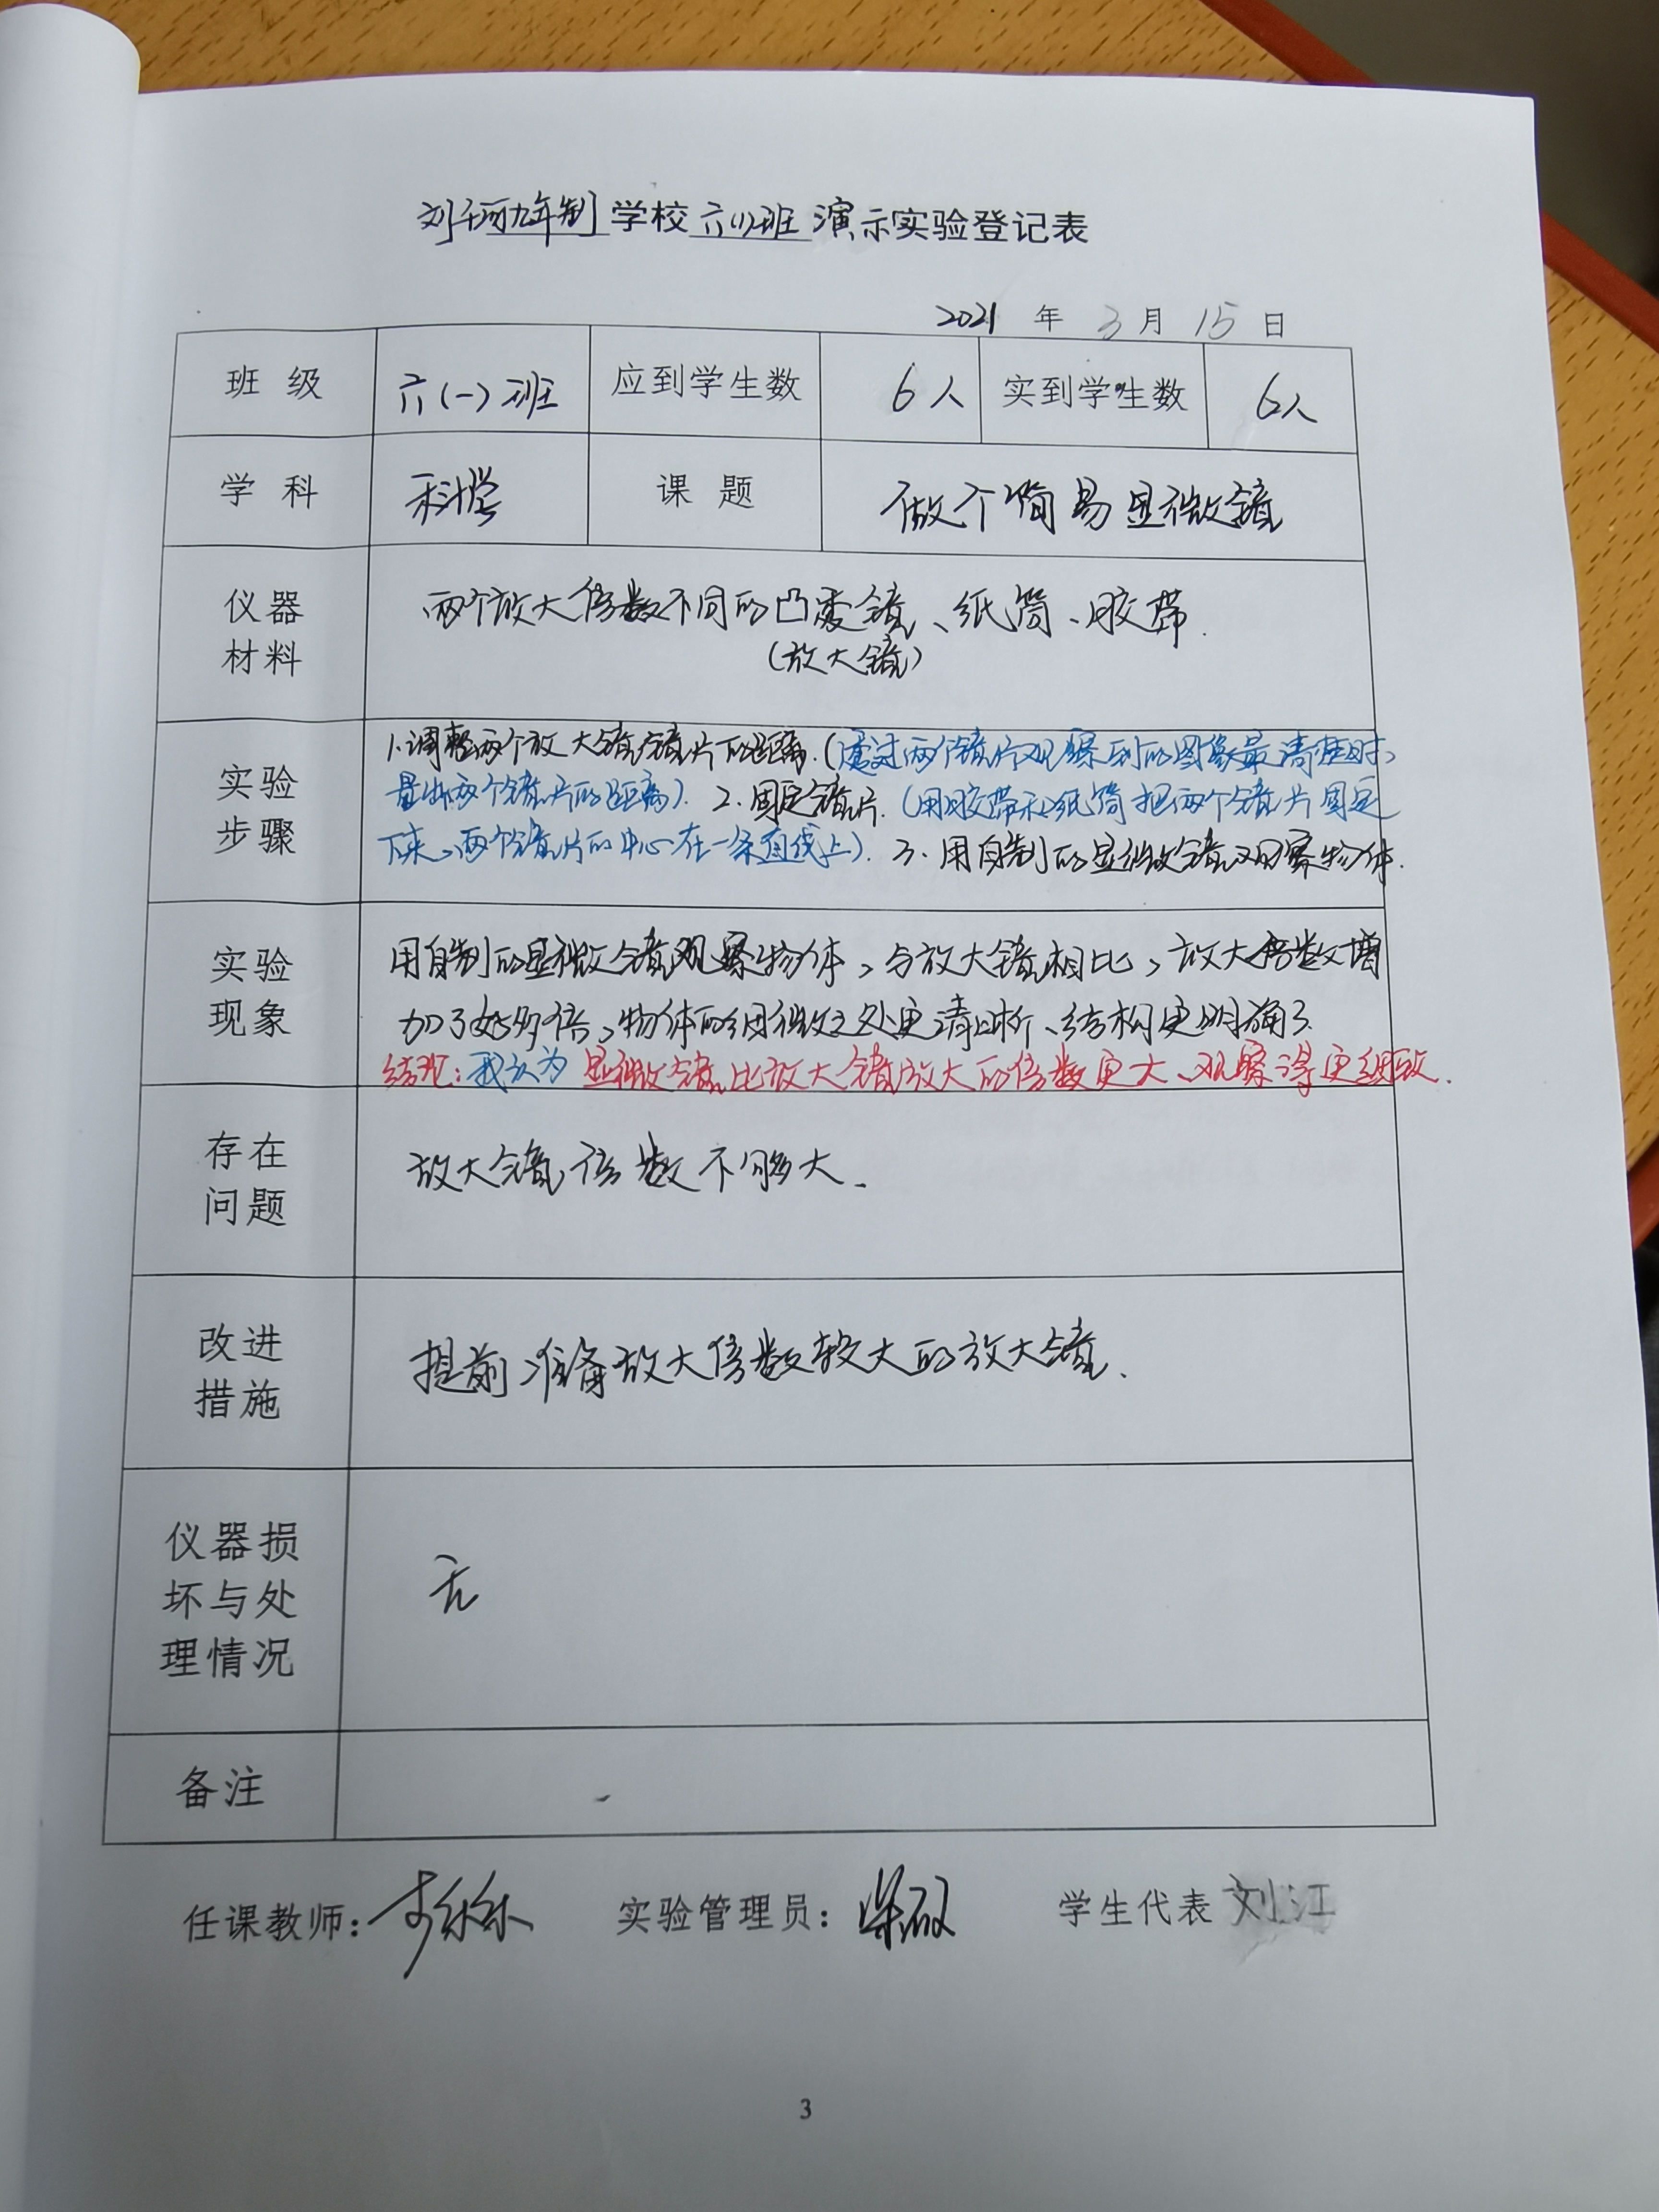 刘千河九年制学校六(1)班演示实验登记表
2021 年 3 月 15 日
班 级 六(一)班 应到学生数 6人 实到学生数 6人
学 科 科学 课 题 做个简易显微镜
仪器材料
两个放大倍数不同的凸透镜、纸筒、胶带.
(放大镜)
实验步骤
1.调整两个放大镜镜片的距离.(透过两个镜片观察到的图象最清楚时,
量出两个镜片的距离). 2.固定镜片.(用胶带和纸筒把两个镜片固定
下来,两个镜片的中心在一条直线上). 3.用自制的显微镜观察物体.
实验现象
用自制的显微镜观察物体,与放大镜相比,放大倍数增
加了好多倍,物体的细微之处更清晰、结构更明确了.
结现:我认为显微镜比放大镜放大的倍数更大、观察得更细致.
存在问题
放大镜倍数不够大.
改进措施
提前准备放大倍数较大的放大镜.
仪器损坏与处理情况
无
备注
任课教师: 实验管理员: 学生代表 刘江
3